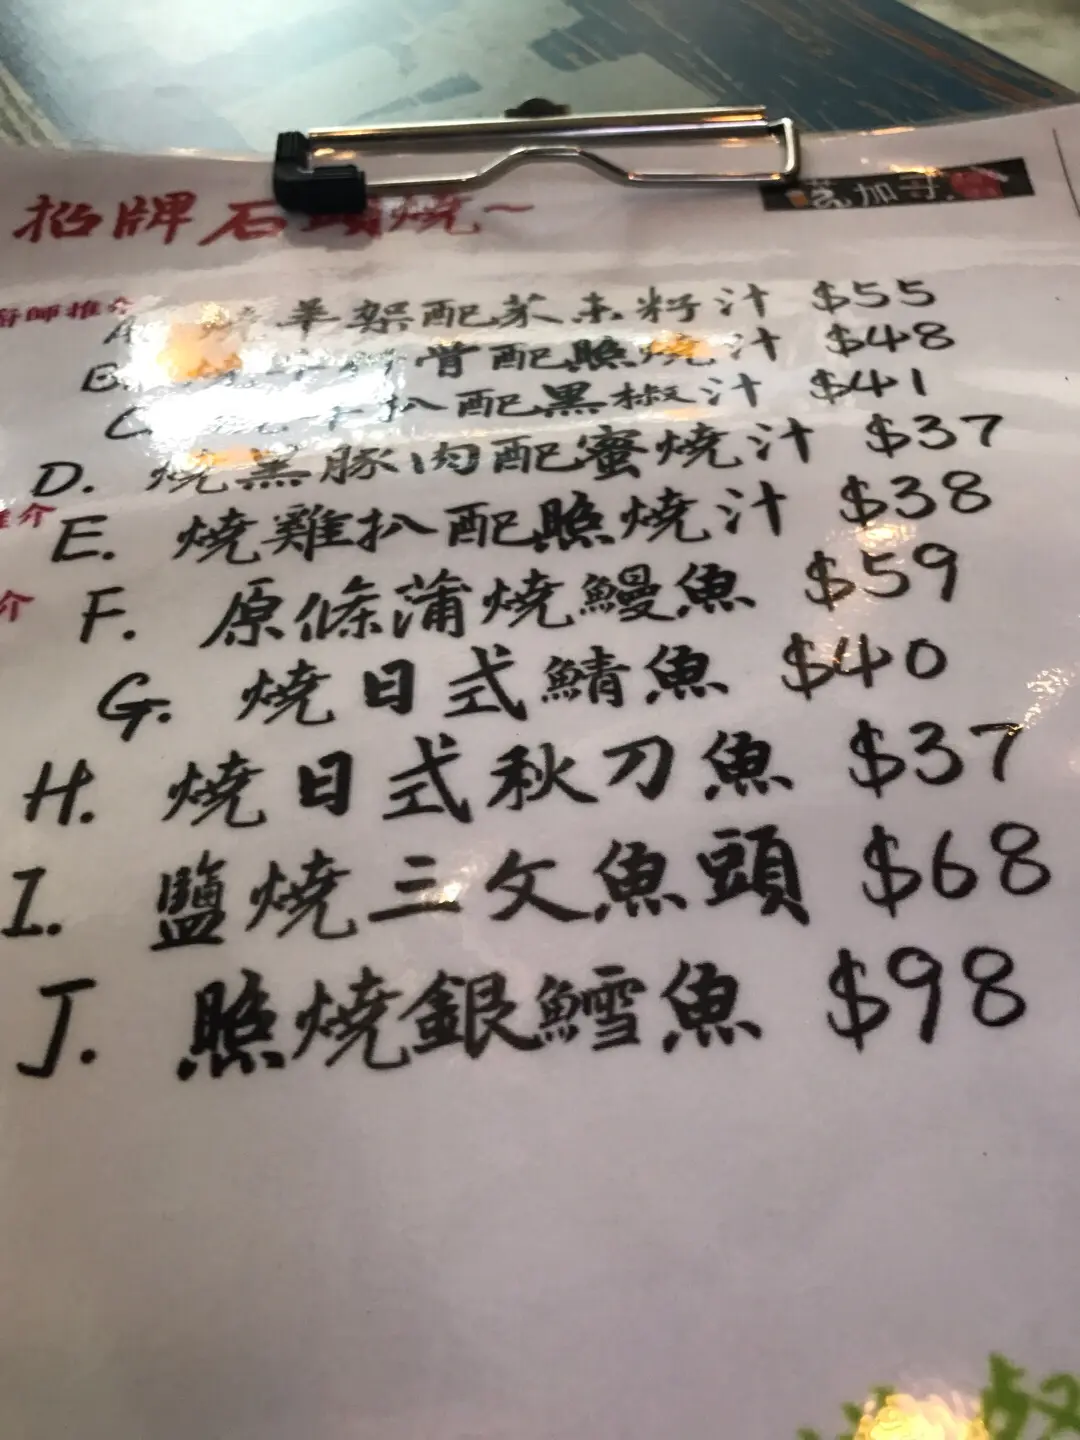 招牌石頭燒~
加哥
廚師推介
A. 燒羊架配芥末籽汁 $55
B. 骨配照燒汁 $48
C. 扒配黑椒汁 $41
D. 燒黑豚肉配蜜燒汁 $37
推介
E. 燒雞扒配照燒汁 $38
介
F. 原條蒲燒鰻魚 $59
G. 燒日式鯖魚 $40
H. 燒日式秋刀魚 $37
I. 鹽燒三文魚頭 $68
J. 照燒銀鱈魚 $98